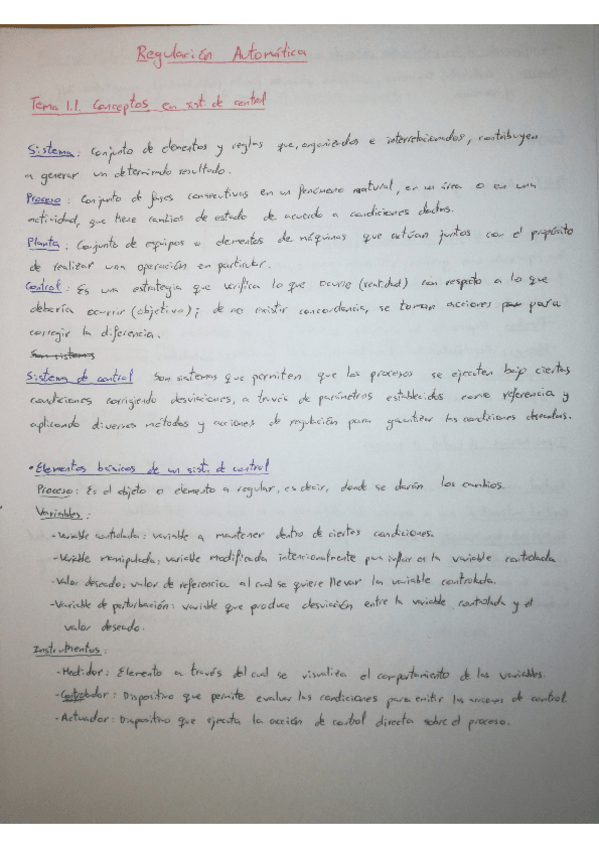 Regulación Automática
Tema 1.1. Conceptos en sist. de control
Sistema: Conjunto de elementos y reglas que, organizados e interrelacionados, contribuyen
a generar un determinado resultado.
Proceso: Conjunto de fases consecutivas en un fenómeno natural, en un área o en una
actividad, que tiene cambios de estado de acuerdo a condiciones dadas.
Planta: Conjunto de equipos o elementos de máquinas que actúan juntos con el propósito
de realizar una operación en particular.
Control: Es una estrategia que verifica lo que ocurre (realidad) con respecto a lo que
debería ocurrir (objetivo); de no existir concordancia, se toman acciones para
corregir la diferencia.
Son sistemas
Sistema de control Son sistemas que permiten que los procesos se ejecuten bajo ciertas
condiciones corrigiendo desviaciones, a través de parámetros establecidos como referencia y
aplicando diversos métodos y acciones de regulación para garantizar las condiciones deseadas.
• Elementos básicos de un sist. de control
Proceso: Es el objeto o elemento a regular, es decir, donde se darán los cambios.
Variables:
- Variable controlada: variable a mantener dentro de ciertas condiciones.
- Variable manipulada: variable modificada intencionalmente para influir en la variable controlada
- Valor deseado: valor de referencia al cual se quiere llevar la variable controlada.
- Variable de perturbación: variable que produce desviación entre la variable controlada y el
valor deseado.
Instrumentos:
- Medidor: Elemento a través del cual se visualiza el comportamiento de las variables.
- Controlador: Dispositivo que permite evaluar las condiciones para emitir las acciones de control
- Actuador: Dispositivo que ejecuta la acción de control directa sobre el proceso.